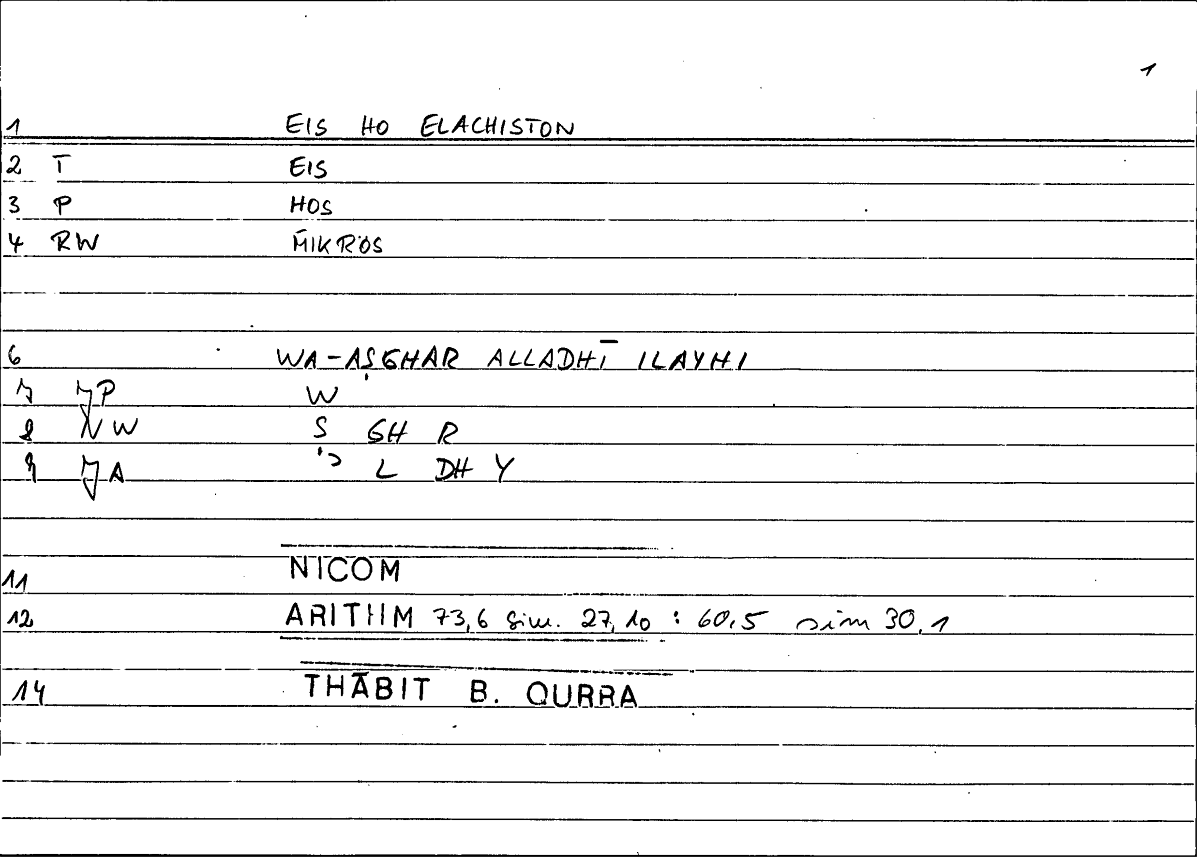 1
1 EIS HO ELACHISTON
2 T EIS
3 P HOS
4 RW MIKRÓS
6 WA-AṢGHAR ALLADHĪ ILAYHI
7 JP W
8 NW Ṣ GH R
9 JA L DH Y
11 NICOM
12 ARITHM 73,6 sim. 27,10 : 60,5 sim 30,1
14 THĀBIT B. QURRA